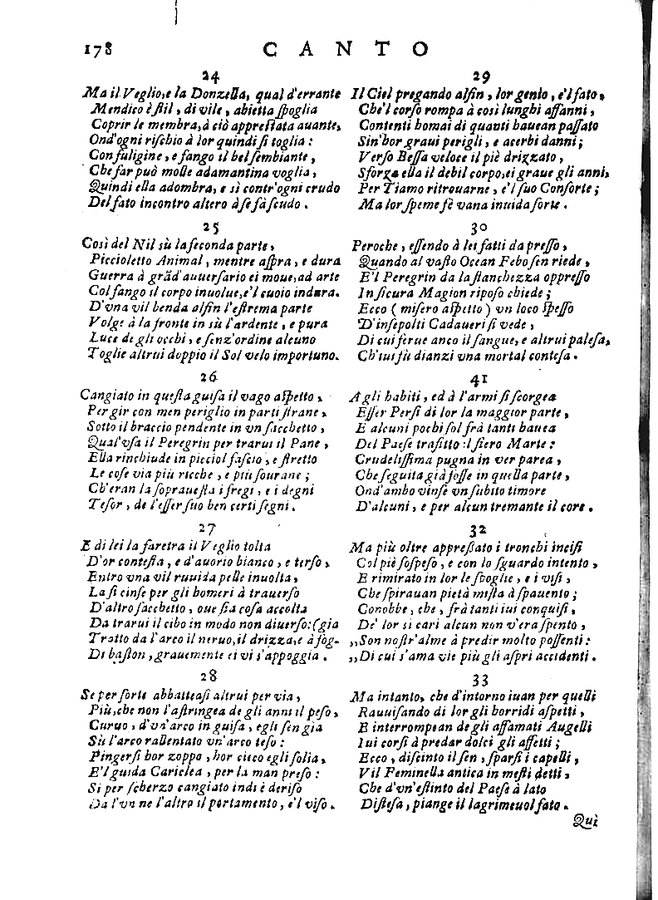 178 CANTO
24
Ma il Veglio, e la Donzella, qual d'errante
Mendico è stil, di vile, abietta spoglia
Coprir le membra, à ciò apprestata auante,
Ond'ogni rischio à lor quindi si toglia:
Con fuligine, e fango il bel sembiante,
Che far può molle adamantina voglia,
Quindi ella adombra, e sì contr'ogni crudo
Del fato incontro altero à se fà scudo.
25
Così del Nil sù la feconda parte,
Piccioletto Animal, mentre aspra, e dura
Guerra à grãd'auuersario ei moue, ad arte
Col fango il corpo inuolue, e'l cuoio indura.
D'vna vil benda alfin l'estrema parte
Volge à la fronte in sù l'ardente, e pura
Luce de gli occhi, e senz'ordine alcuno
Toglie altrui doppio il Sol velo importuno.
26
Cangiato in questa guisa il vago aspetto,
Per gir con men periglio in parti strane,
Sotto il braccio pendente in vn sacchetto,
Qual'vsa il Peregrin per trarui il Pane,
Ella rinchiude in picciol fascio, e stretto
Le cose via più ricche, e più sourane;
Ch'eran la soprauesta i fregi, e i degni
Tesor, de l'esser suo ben certi segni.
27
E di lei la faretra il Veglio tolta
D'or contesta, e d'auorio bianco, e terso,
Entro vna vil ruuida pelle inuolta,
La si cinse per gli homeri à trauerso
D'altro sacchetto, oue sia cosa accolta
Da trarui il cibo in modo non diuerso: (gia
Tratto da l'arco il neruo, il drizza, e à fog-
Di baston, grauemente ei vi s'appoggia.
28
Se per sorte abbatteasi altrui per via,
Più, che non l'astringea de gli anni il peso,
Curuo, d'vn'arco in guisa, egli sen gia
Sù l'arco rallentato vn'arco teso:
Pingersi hor zoppo, hor cieco egli solia,
E'l guida Cariclea, per la man preso:
Si per scherzo cangiato indi è deriso
Da l'vn ne l'altro il portamento, e'l viso.
29
Il Ciel pregando alfin, lor genio, e'l fato,
Che'l corso rompa à così lunghi affanni,
Contenti homai di quanti hauean passato
Sin'hor graui perigli, e acerbi danni;
Verso Bessa veloce il piè drizzato,
Sforza ella il debil corpo, ei graue gli anni,
Per Tiamo ritrouarne, e'l suo Consorte;
Ma lor speme fè vana inuida sorte.
30
Peroche, essendo à lei fatti da presso,
Quando al vasto Ocean Febo sen riede,
E'l Peregrin da la stanchezza oppresso
In sicura Magion riposo chiede;
Ecco (misero aspetto) vn loco spesso
D'insepolti Cadaueri si vede,
Di cui ferue anco il sangue, e altrui palesa,
Ch'iui fù dianzi vna mortal contesa.
41
A gli habiti, ed à l'armi si scorgea
Esser Persi di lor la maggior parte,
E alcuni pochi sol frà tanti hauea
Del Paese trafitto il fiero Marte:
Crudelissima pugna in ver parea,
Che seguita già fosse in quella parte,
Ond'ambo vinse vn subito timore
D'alcuni, e per alcun tremante il core.
32
Ma più oltre appressato i tronchi incisi
Col piè sospeso, e con lo sguardo intento,
E rimirato in lor le spoglie, e i visi,
Che spirauan pietà mista à spauento;
Conobbe, che, frà tanti iui conquisi,
De' lor sì cari alcun non v'era spento,
„Son nostr'alme à predir molto possenti:
„Di cui s'ama vie più gli aspri accidenti.
33
Ma intanto, che d'intorno iuan per quelli
Rauuisando di lor gli horridi aspetti,
E interrompean de gli affamati Augelli
Iui corsi à predar dolci gli affetti;
Ecco, discinto il sen, sparsi i capelli,
Vil Feminella antica in mesti detti,
Che d'vn'estinto del Paese à lato
Distesa, piange il lagrimeuol fato.
Quì